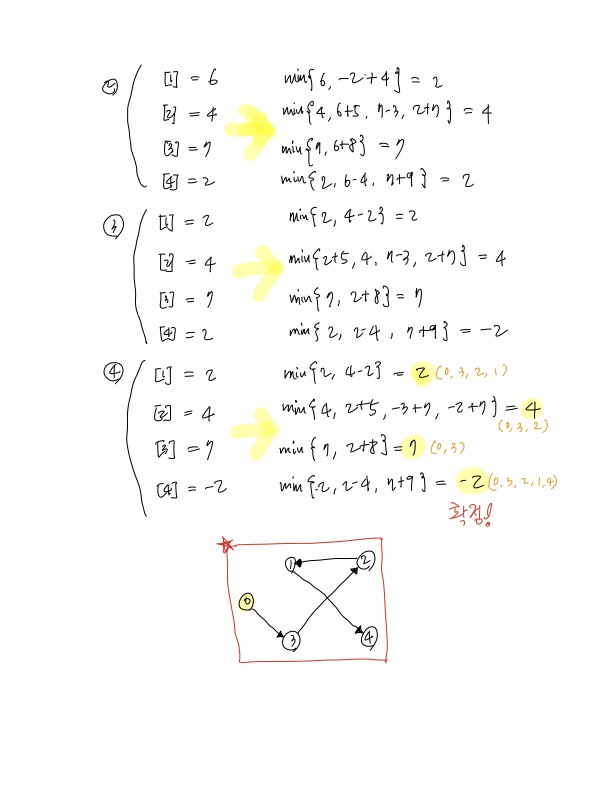 ② [1] = 6 min{6, -2+4} = 2
[2] = 4 min{4, 6+5, 7-3, 2+7} = 4
[3] = 7 min{7, 6+8} = 7
[4] = 2 min{2, 6-4, 7+9} = 2
③ [1] = 2 min{2, 4-2} = 2
[2] = 4 min{2+5, 4, 7-3, 2+7} = 4
[3] = 7 min{7, 2+8} = 7
[4] = 2 min{2, 2-4, 7+9} = -2
④ [1] = 2 min{2, 4-2} = 2 (0, 3, 2, 1)
[2] = 4 min{4, 2+5, -3+7, -2+7} = 4
(0, 3, 2)
[3] = 7 min{7, 2+8} = 7 (0, 3)
[4] = -2 min{-2, 2-4, 7+9} = -2 (0, 3, 2, 1, 4)
확정!
1 2
0
3 4